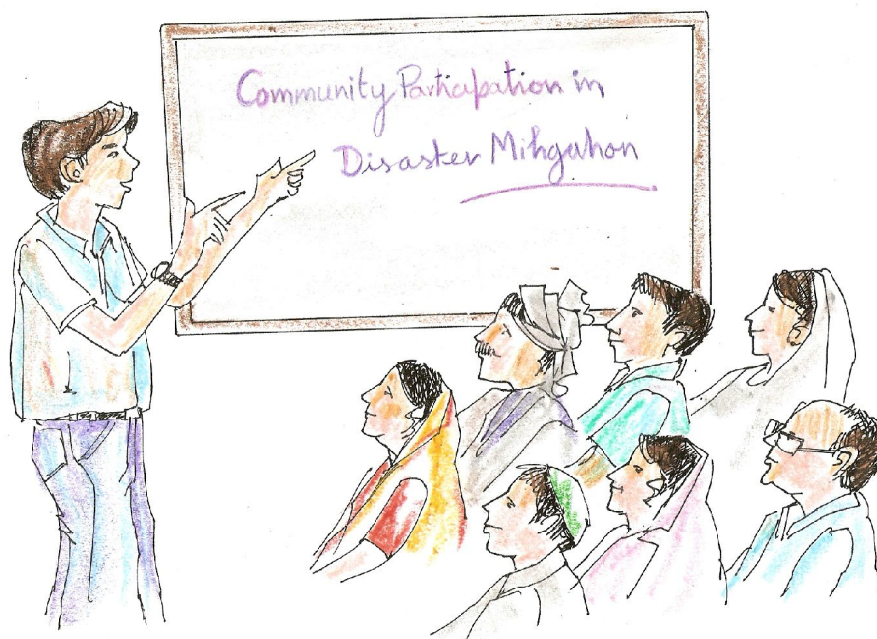 Community Participation in
Disaster Mitigation